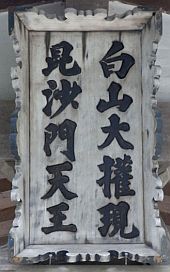 白山大權現
毘沙門天王